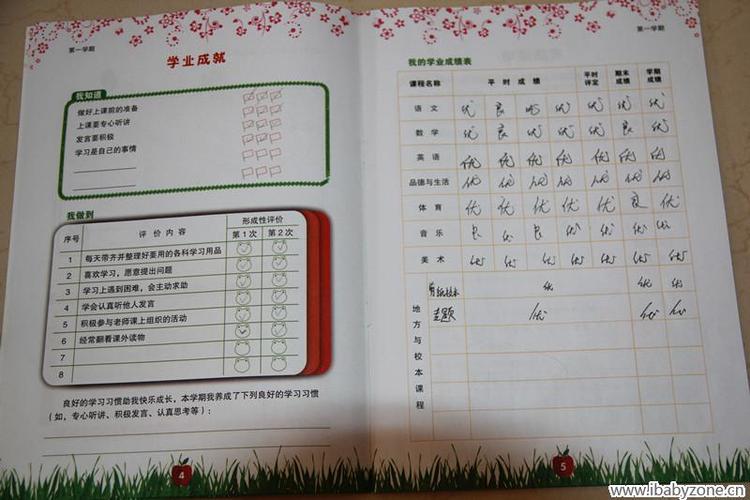 第一学期
学业成就
我知道
做好上课前的准备
上课要专心听讲
发言要积极
学习是自己的事情
我做到
序号 评价内容 形成性评价
第1次 第2次
1 每天带齐并整理好要用的各科学习用品
2 喜欢学习，愿意提出问题
3 学习上遇到困难，会主动求助
4 学会认真听他人发言
5 积极参与老师课上组织的活动
6 经常翻看课外读物
7
8
良好的学习习惯助我快乐成长，本学期我养成了下列良好的学习习惯
（如，专心听讲、积极发言、认真思考等）：
4
第一学期
我的学业成绩表
课程名称 平时成绩 平时评定 期末成绩 学期成绩
语文 优 良 优 优 优 优 优
数学 优 良 优 优 优 良 优
英语 优 优 优 优 优 优 优
品德与生活 优 优 优 优 优 优 优
体育 优 优 优 优 优 良 优
音乐 良 优 良 优 优 优 优
美术 优 优 优 优 优 优 优
地方与校本课程
优 优 优
主题 优 优 优
5
www.ibabyzone.cn